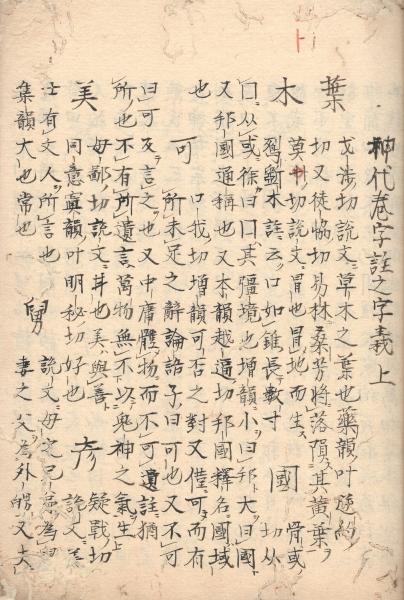 神代巻字註之字義上
葉 弋渉切説文草木之葉也藥韻叶逆約
切又徒恊切易林桑芳將落隕其黄葉
木 莫切説文冒也冒地而生 國 骨或
斵木註云口如錐長數寸 切从
口从或徐曰口其疆境也増韻小曰邦大曰國
又邦國通稱也又本韻越逼切邦國釋名國域
也 可 口我切増韻可否之對又僅可而有
所未足之辭論語子曰可也又不可
曰可及言之也又中庸體物而不可遺註猶
所也不有所遺言萬物無不以鬼神之氣生
美 母鄙切説文甘也美與善 彦 疑戰切
同意寘韻叶明秘切好也 説文美
士有文人所言也 舅 説文母之兄弟為舅
集韻大也常也 妻之父為外舅又夫